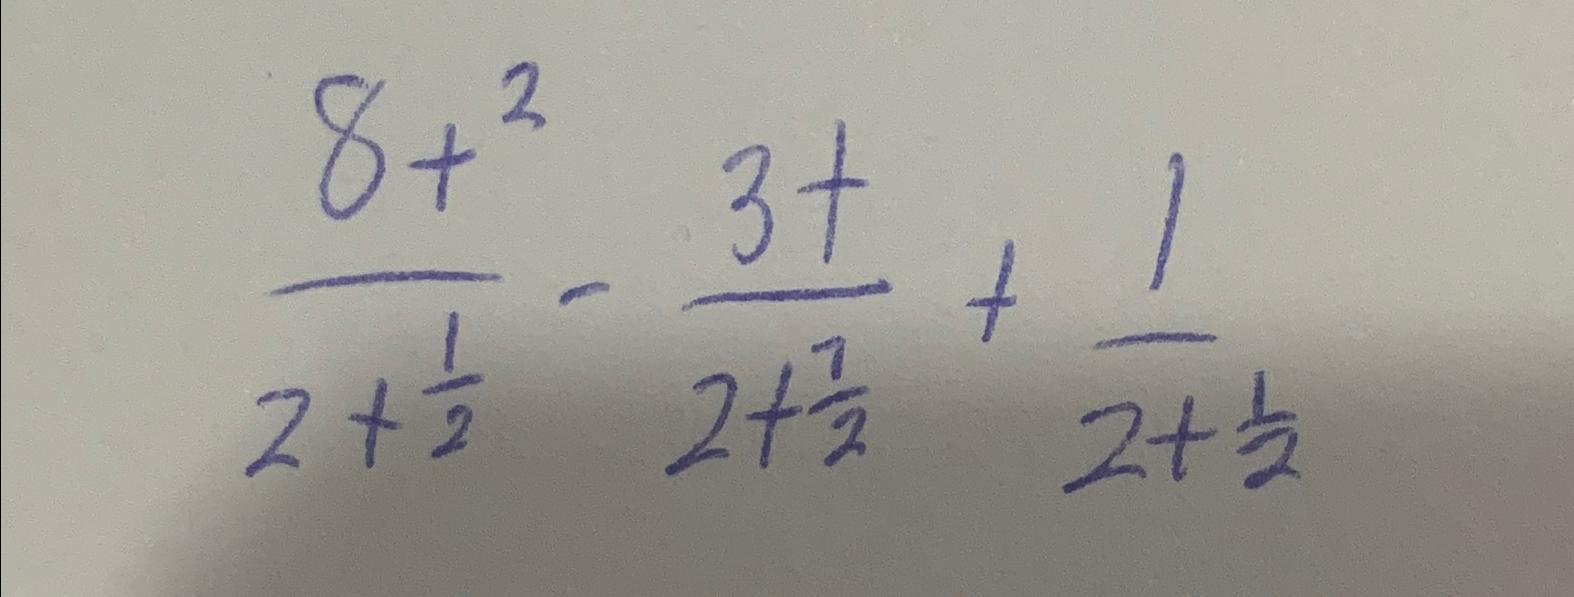 \frac{8t^2}{2t^{\frac{1}{2}}} - \frac{3t}{2t^{\frac{1}{2}}} + \frac{1}{2t^{\frac{1}{2}}}